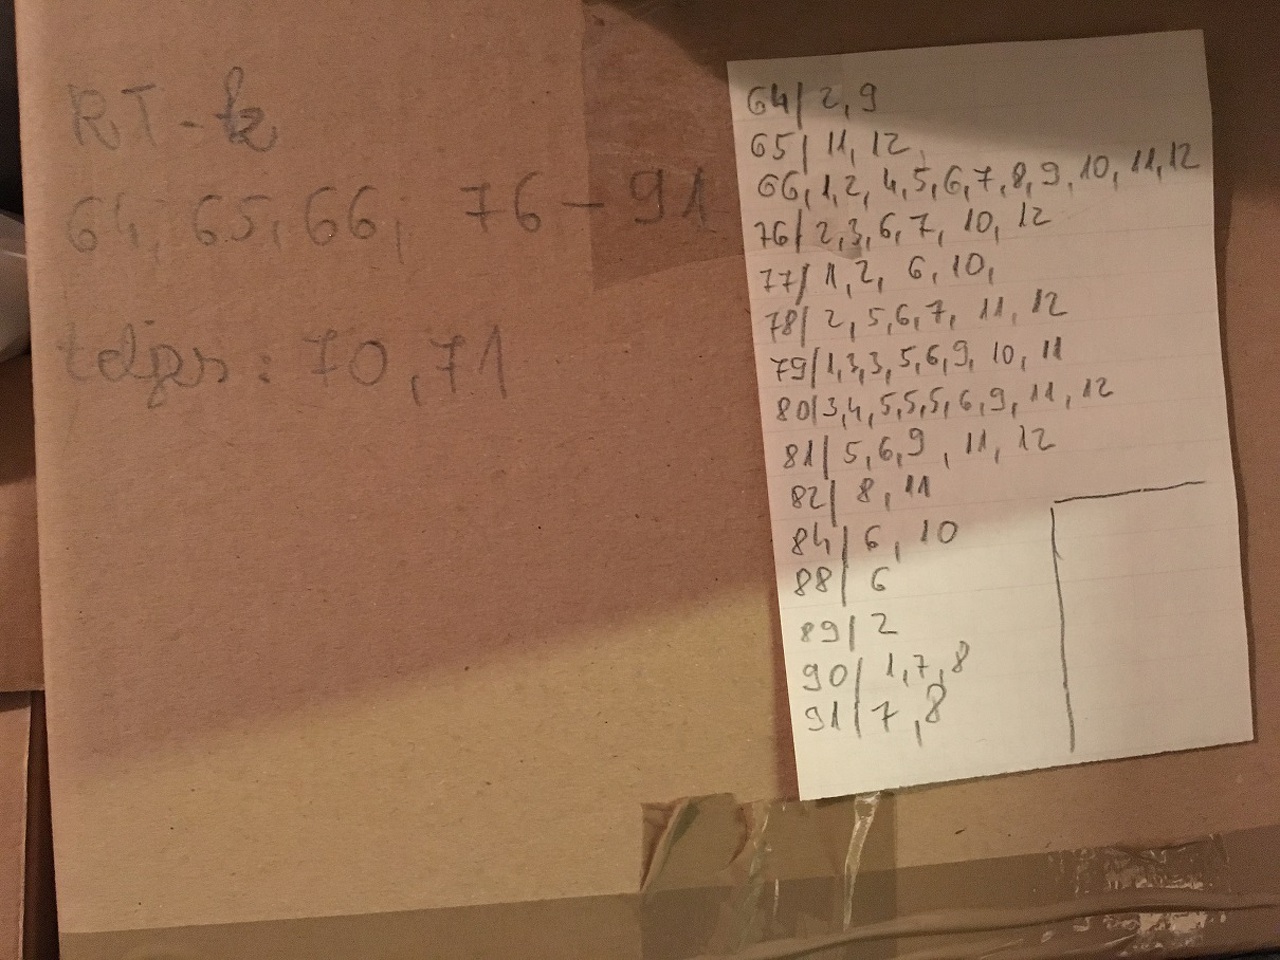 RT-k
64; 65, 66; 76-91
teljes: 70, 71
64/ 2, 9
65/ 11, 12,
66, 1, 2, 4, 5, 6, 7, 8, 9, 10, 11, 12
76/ 2, 3, 6, 7, 10, 12
77/ 1, 2, 6, 10,
78/ 2, 5, 6, 7, 11, 12
79/ 1, 3, 3, 5, 6, 9, 10, 11
80/ 3, 4, 5, 5, 5, 6, 9, 11, 12
81/ 5, 6, 9, 11, 12
82/ 8, 11
84/ 6, 10
88/ 6
89/ 2
90/ 1, 7, 8
91/ 7, 8